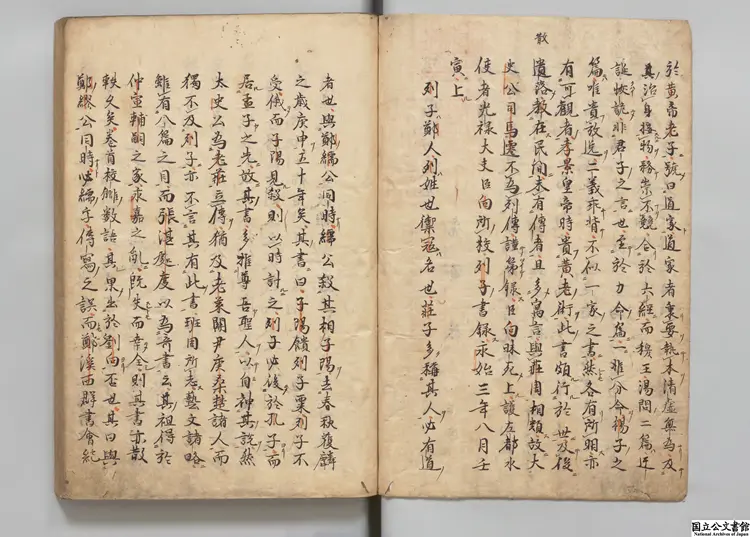 散
於黄帝老子號曰道家道家者秉要執本清虚無為及
其治身接物務崇不競合於六經而穆王湯問二篇迂
誕恢詭非君子之言也至於力命篇一推分命楊子之
篇唯貴放逸二義乖背不似一家之書然各有所明亦
有可觀者孝景皇帝時貴黄老術此書頗行於世及後
遺落散在民間未有傳者且多寓言與莊周相類故大
史公司馬遷不為列傳謹第錄臣向昧死上護左都水
使者光禄大夫臣向所校列子書錄永始三年八月壬
寅上
列子鄭人列姓也禦寇名也莊子多稱其人必有道
者也與鄭繻公同時繻公殺其相子陽去春秋獲麟
之歳庚申五十年矣其書曰子陽饋列子粟列子不
受儀而子陽見殺則以時計之列子必後於孔子而
居孟子之先故其書多推尊吾聖人以自神其説然
太史公為老莊立傳猶及老萊關尹庚桑楚諸人而
獨不及列子亦不言其有此書班固所志藝文諸略
雖有八篇之目而張湛處度以為奇書云其祖得於
仲宣輔嗣之家永嘉之亂既失而幸全則其書亦散
軼久矣卷首校讎数語其果出於劉向否也其曰與
鄭繆公同時必繻字傳寫之誤而鄭溪西群書會紀
国立公文書館
National Archives of Japan